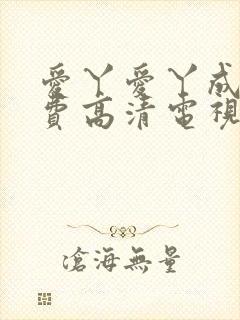 愛丫愛丫成
費高清電視
滄海無量